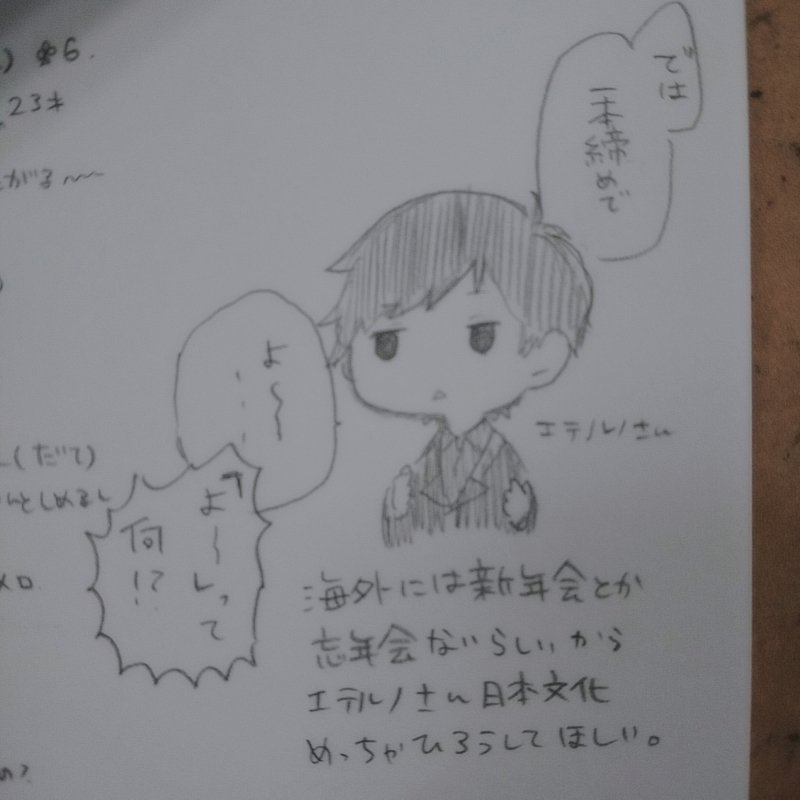 では
一本締めで
よ〜
…
「よ〜」って
何!?
エテルノさん
海外には新年会とか
忘年会ないらしいから
エテルノさん日本文化
めっちゃひろうしてほしい。
6.
23キ
がる〜
(だて)
んとしめる
メロ